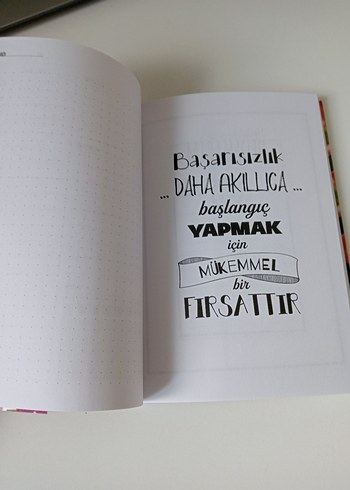 Başarısızlık
... DAHA AKILLICA ...
başlangıç
YAPMAK
için
MÜKEMMEL
bir
FIRSATTIR